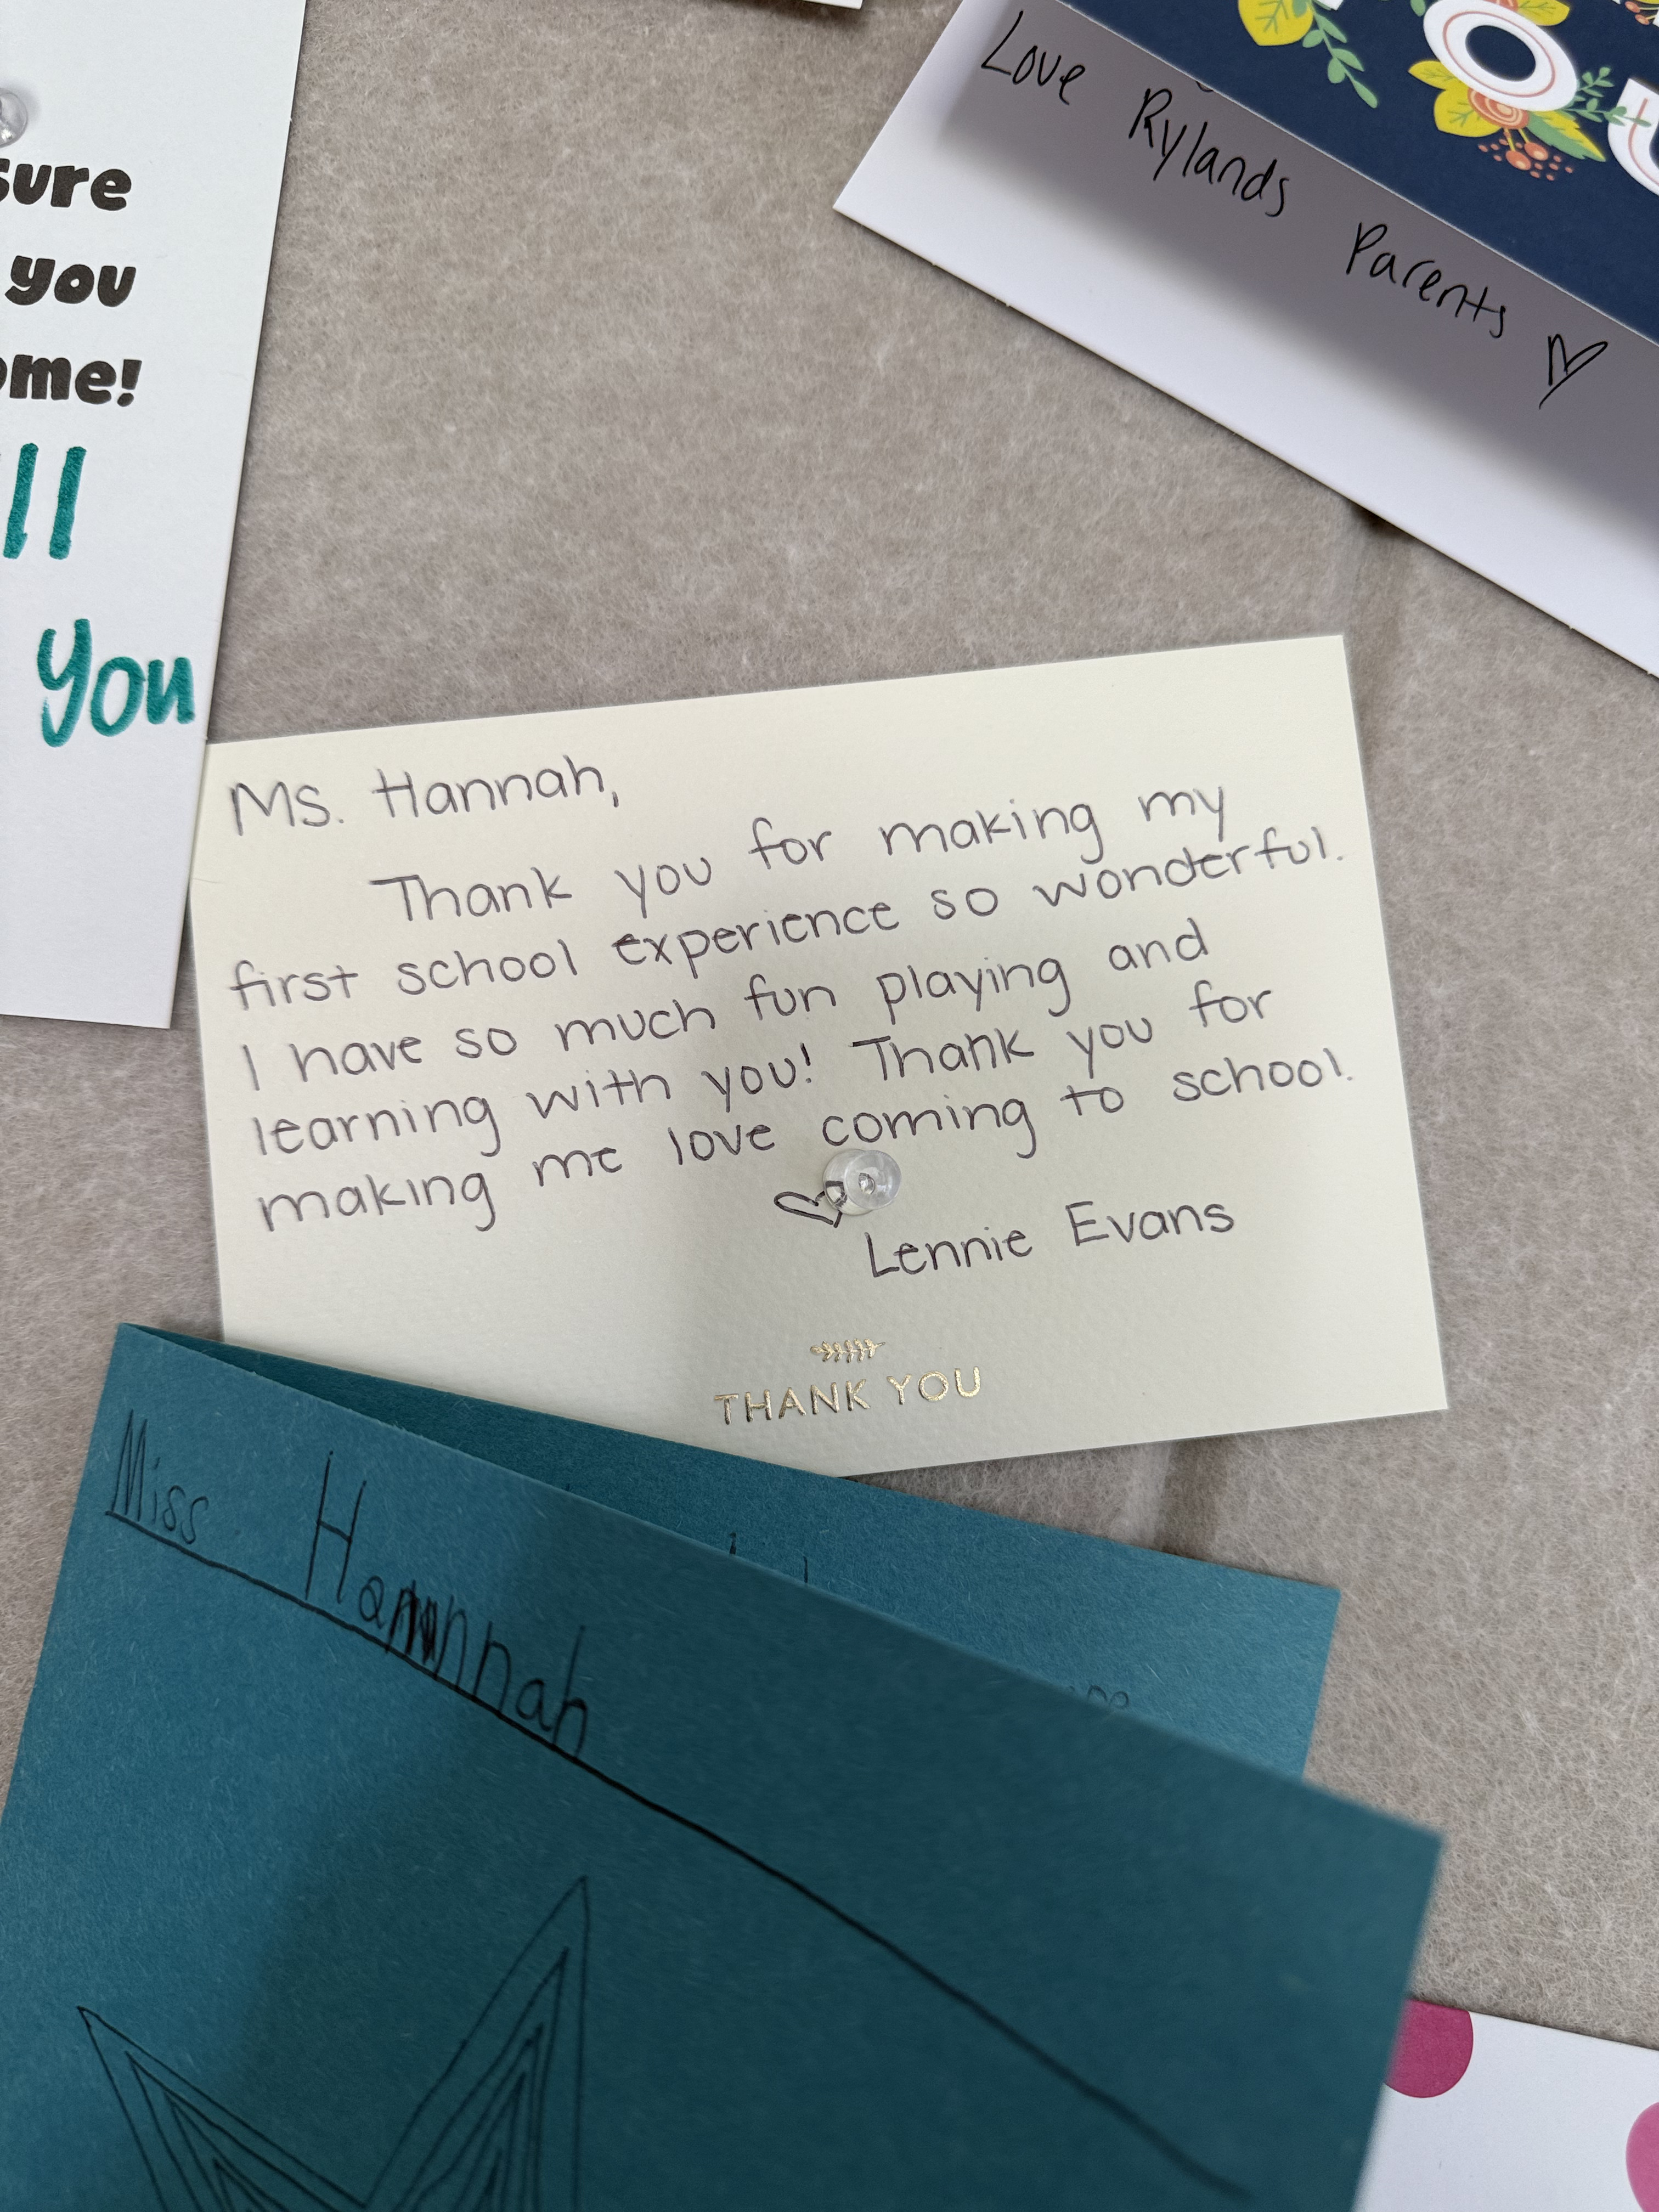 sure
you
ome!
ll
you
OU
Love Rylands Parents
Ms. Hannah,
Thank you for making my
first school experience so wonderful.
I have so much fun playing and
learning with you! Thank you for
making me love coming to school.
Lennie Evans
THANK YOU
Miss Hannah